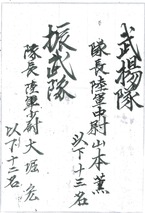 武揚隊
隊長陸軍中尉山本薫
以下十三名
振武隊
隊長陸軍少尉大堀宏
以下十二名